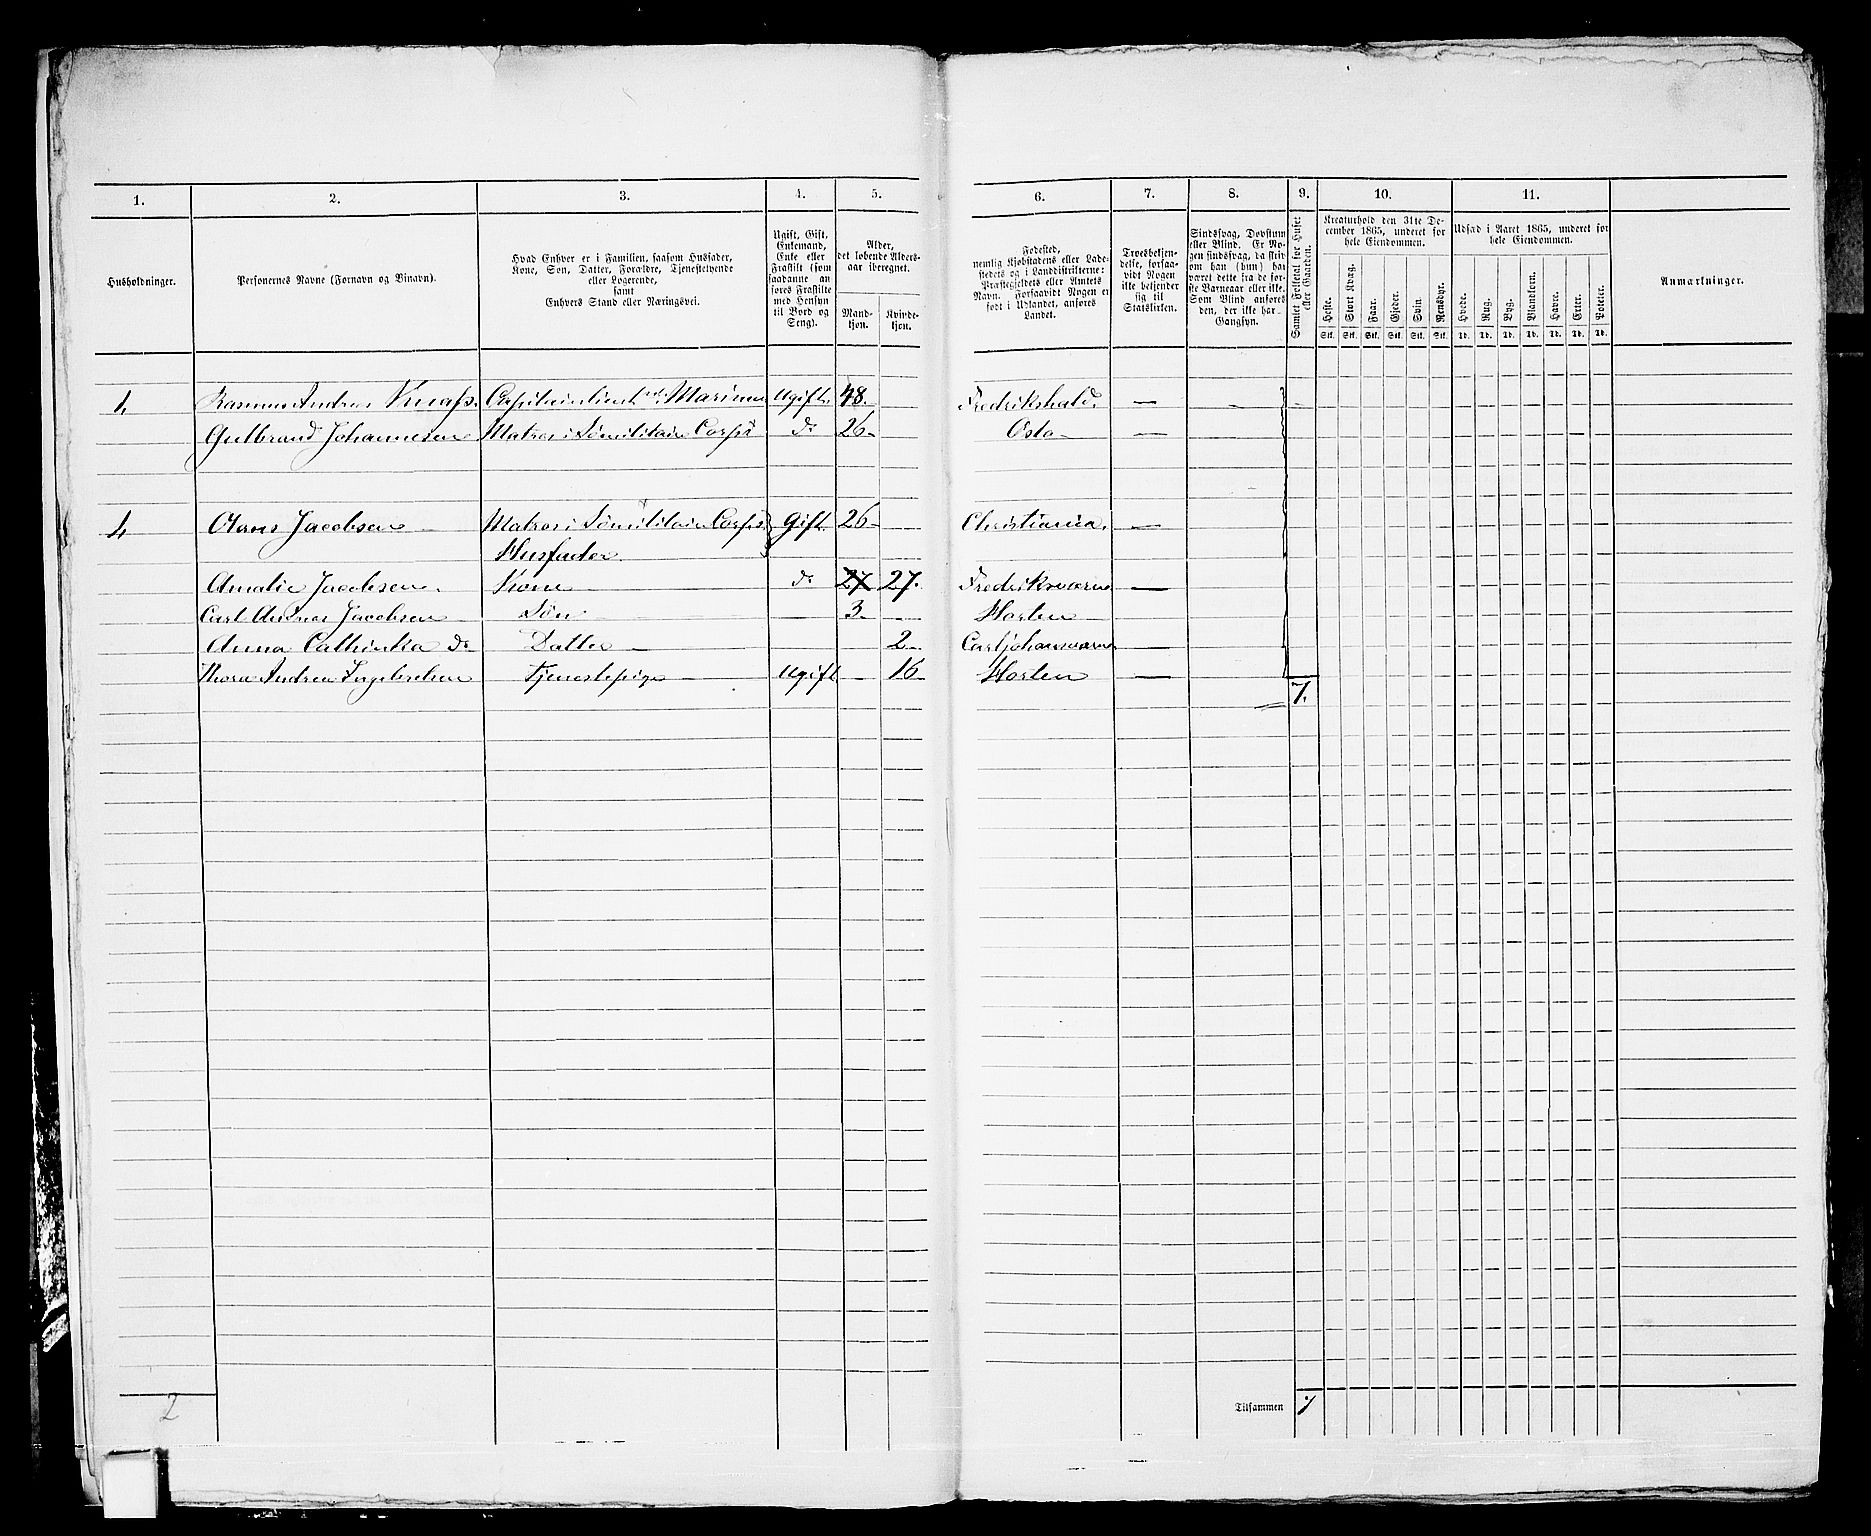 1. 2. 3. 4. 5. 6. 7. 8. 9. 10. 11.
Husholdninger.
Personernes Navne (Fornavn og Binavn).
Hvad Enhver er i Familien, saasom Husfader,
Kone, Søn, Datter, Forældre, Tjenestetyende
eller Logerende,
samt
Enhvers Stand eller Næringsvei.
Ugift, Gift,
Enkemand,
Enke eller
Fraskilt (som
saadanne an-
føres Fraskilte
med Hensyn
til Bord og
Seng).
Alder,
det løbende Alders-
aar iberegnet.
Mand-
kjøn.
Kvinde-
kjøn.
Fødested,
nemlig Kjøbstadens eller Lade-
stedets og i Landdistrikterne:
Præstegjeldets eller Amtets
Navn. Forsaavidt Nogen er
født i Udlandet, anføres
Landet.
Troesbekjen-
delse, forsaa-
vidt Nogen
ikke bekjender
sig til
Statskirken.
Sindssvag, Døvstum
eller Blind. Er No-
gen sindssvag, da skriv
om han (hun) har
været dette fra de før-
ste Barneaar eller ikke.
Som Blind anføres
den, der ikke har
Gangsyn.
Samlet Folketal for Huset
eller Gaarden.
Kreaturhold den 31te De-
cember 1865, underet for
hele Eiendommen.
Heste. Stort Kvæg. Faar. Gjeder. Svin. Rensdyr.
Stk. Stk. Stk. Stk. Stk. Stk.
Udsæd i Aaret 1865, underet for
hele Eiendommen.
Hvede. Rug. Byg. Blandkorn. Havre. Erter. Poteter.
Td. Td. Td. Td. Td. Td. Td.
Anmærkninger.
1, Rasmus Andreas Knap. Marinen Ugift. 48. Fredrikshald. — —
Gulbrand Johannesen Matros i Sømilitaire Corps do 26 — Oslo — —
1, Jacobsen — Matros i Sømilitaire Corps Gift 26 — Christiania. —
Husfader
Amalie Jacobsen. Kone do 27 27. Fredriksværn —
Carl Jacobsen Søn — 3. — Horten —
Anna Cathinka do Datter — 2 — Carljohansværn
Thora Andrea Tjenestepige — Ugift — 16 — Horten —
7.
2
Tilsammen 7